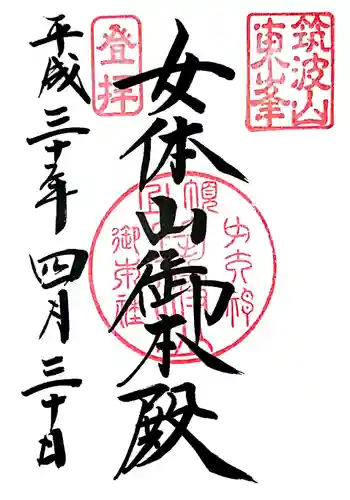 筑波山
東峯
登拝
女体山御本殿
平成三十年
四月
三十日